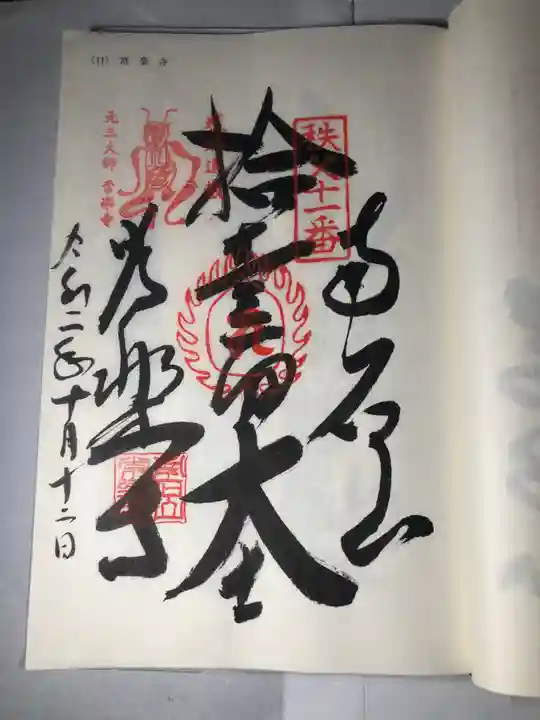 (11) 常楽寺
秩父十一番
南石山
拾壹面大士
常楽寺
元三大師 常楽寺
令和二年十月十二日